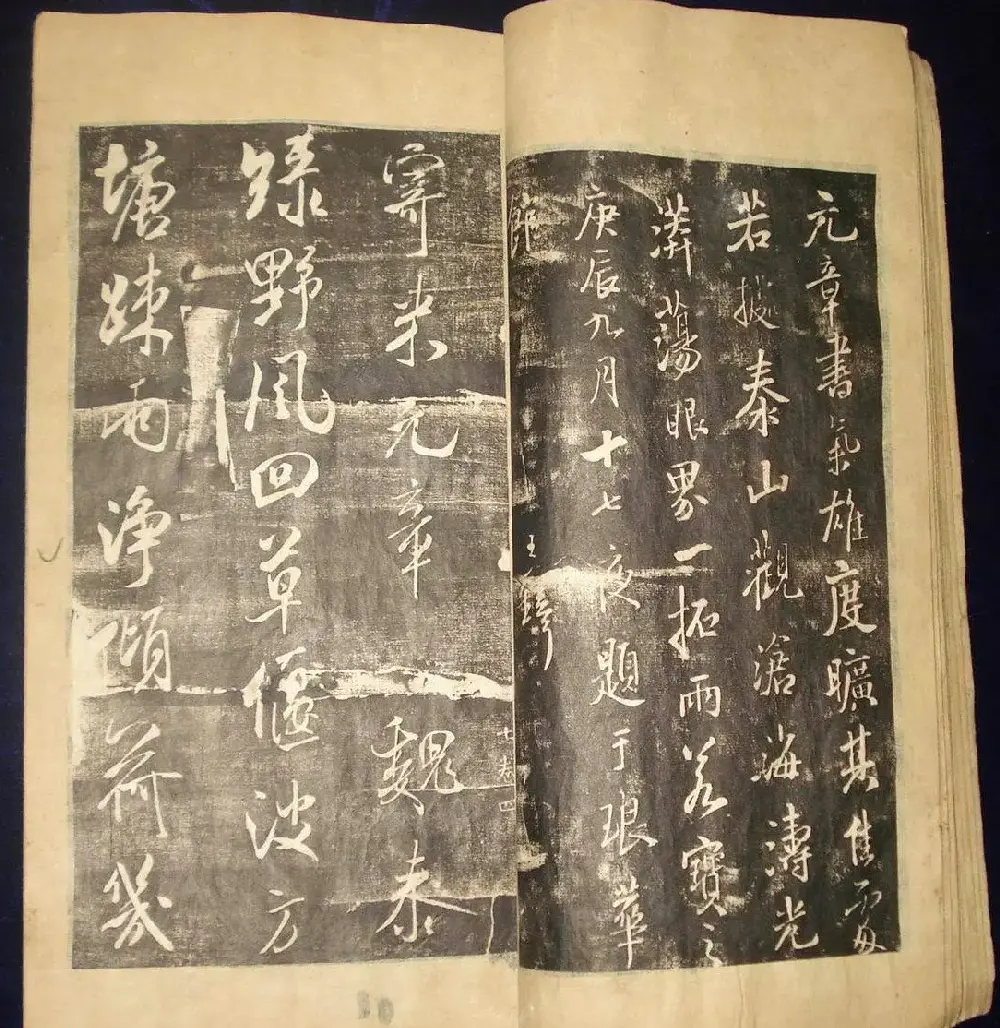 元章書氣雄度曠其佳處
若披泰山觀滄海濤光
漭蕩眼界一拓雨若寶之
庚辰九月十七夜題于琅華
館 王鐸
十卷 四
寄米元章 魏泰
綠野風回草偃波方
塘疎雨淨傾荷幾